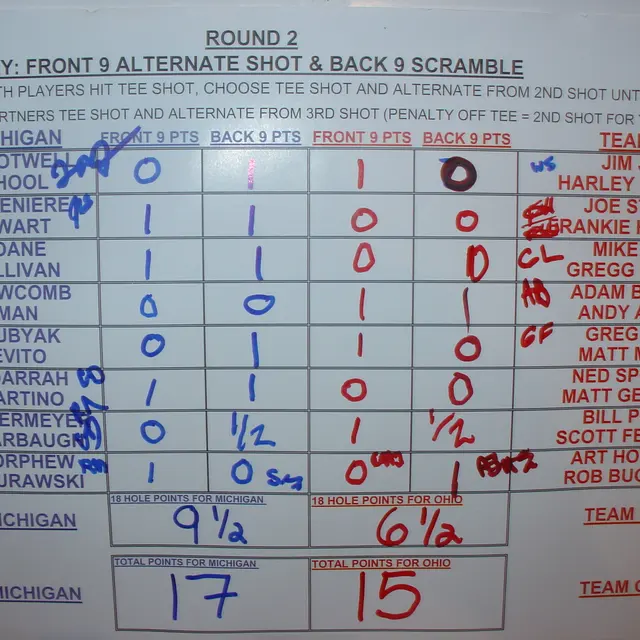 ROUND 2
Y: FRONT 9 ALTERNATE SHOT & BACK 9 SCRAMBLE
TH PLAYERS HIT TEE SHOT, CHOOSE TEE SHOT AND ALTERNATE FROM 2ND SHOT UNT
RTNERS TEE SHOT AND ALTERNATE FROM 3RD SHOT (PENALTY OFF TEE = 2ND SHOT FOR
HIGAN FRONT 9 PTS BACK 9 PTS FRONT 9 PTS BACK 9 PTS TEA
OTWEL JIM
0 1 1 0 WS
HOOL HARLEY
ENIERE JOE S
1 1 0 0
WART FRANKIE
DANE MIKE
1 1 0 0 CL
LLIVAN GREGG
WCOMB ADAM B
0 0 1 1 AB
MAN ANDY A
UBYAK GREG
0 1 1 0 GF
EVITO MATT M
DARRAH NED SP
1 1 0 0
ARTINO MATT GE
ERMEYE BILL P
0 1/2 1 1/2
ARBAUGH SCOTT FE
ORPHEW ART HO
1 0 0 1
URAWSKI ROB BUC
18 HOLE POINTS FOR MICHIGAN 18 HOLE POINTS FOR OHIO
ICHIGAN 9 1/2 6 1/2 TEAM
TOTAL POINTS FOR MICHIGAN TOTAL POINTS FOR OHIO
MICHIGAN 17 15 TEAM